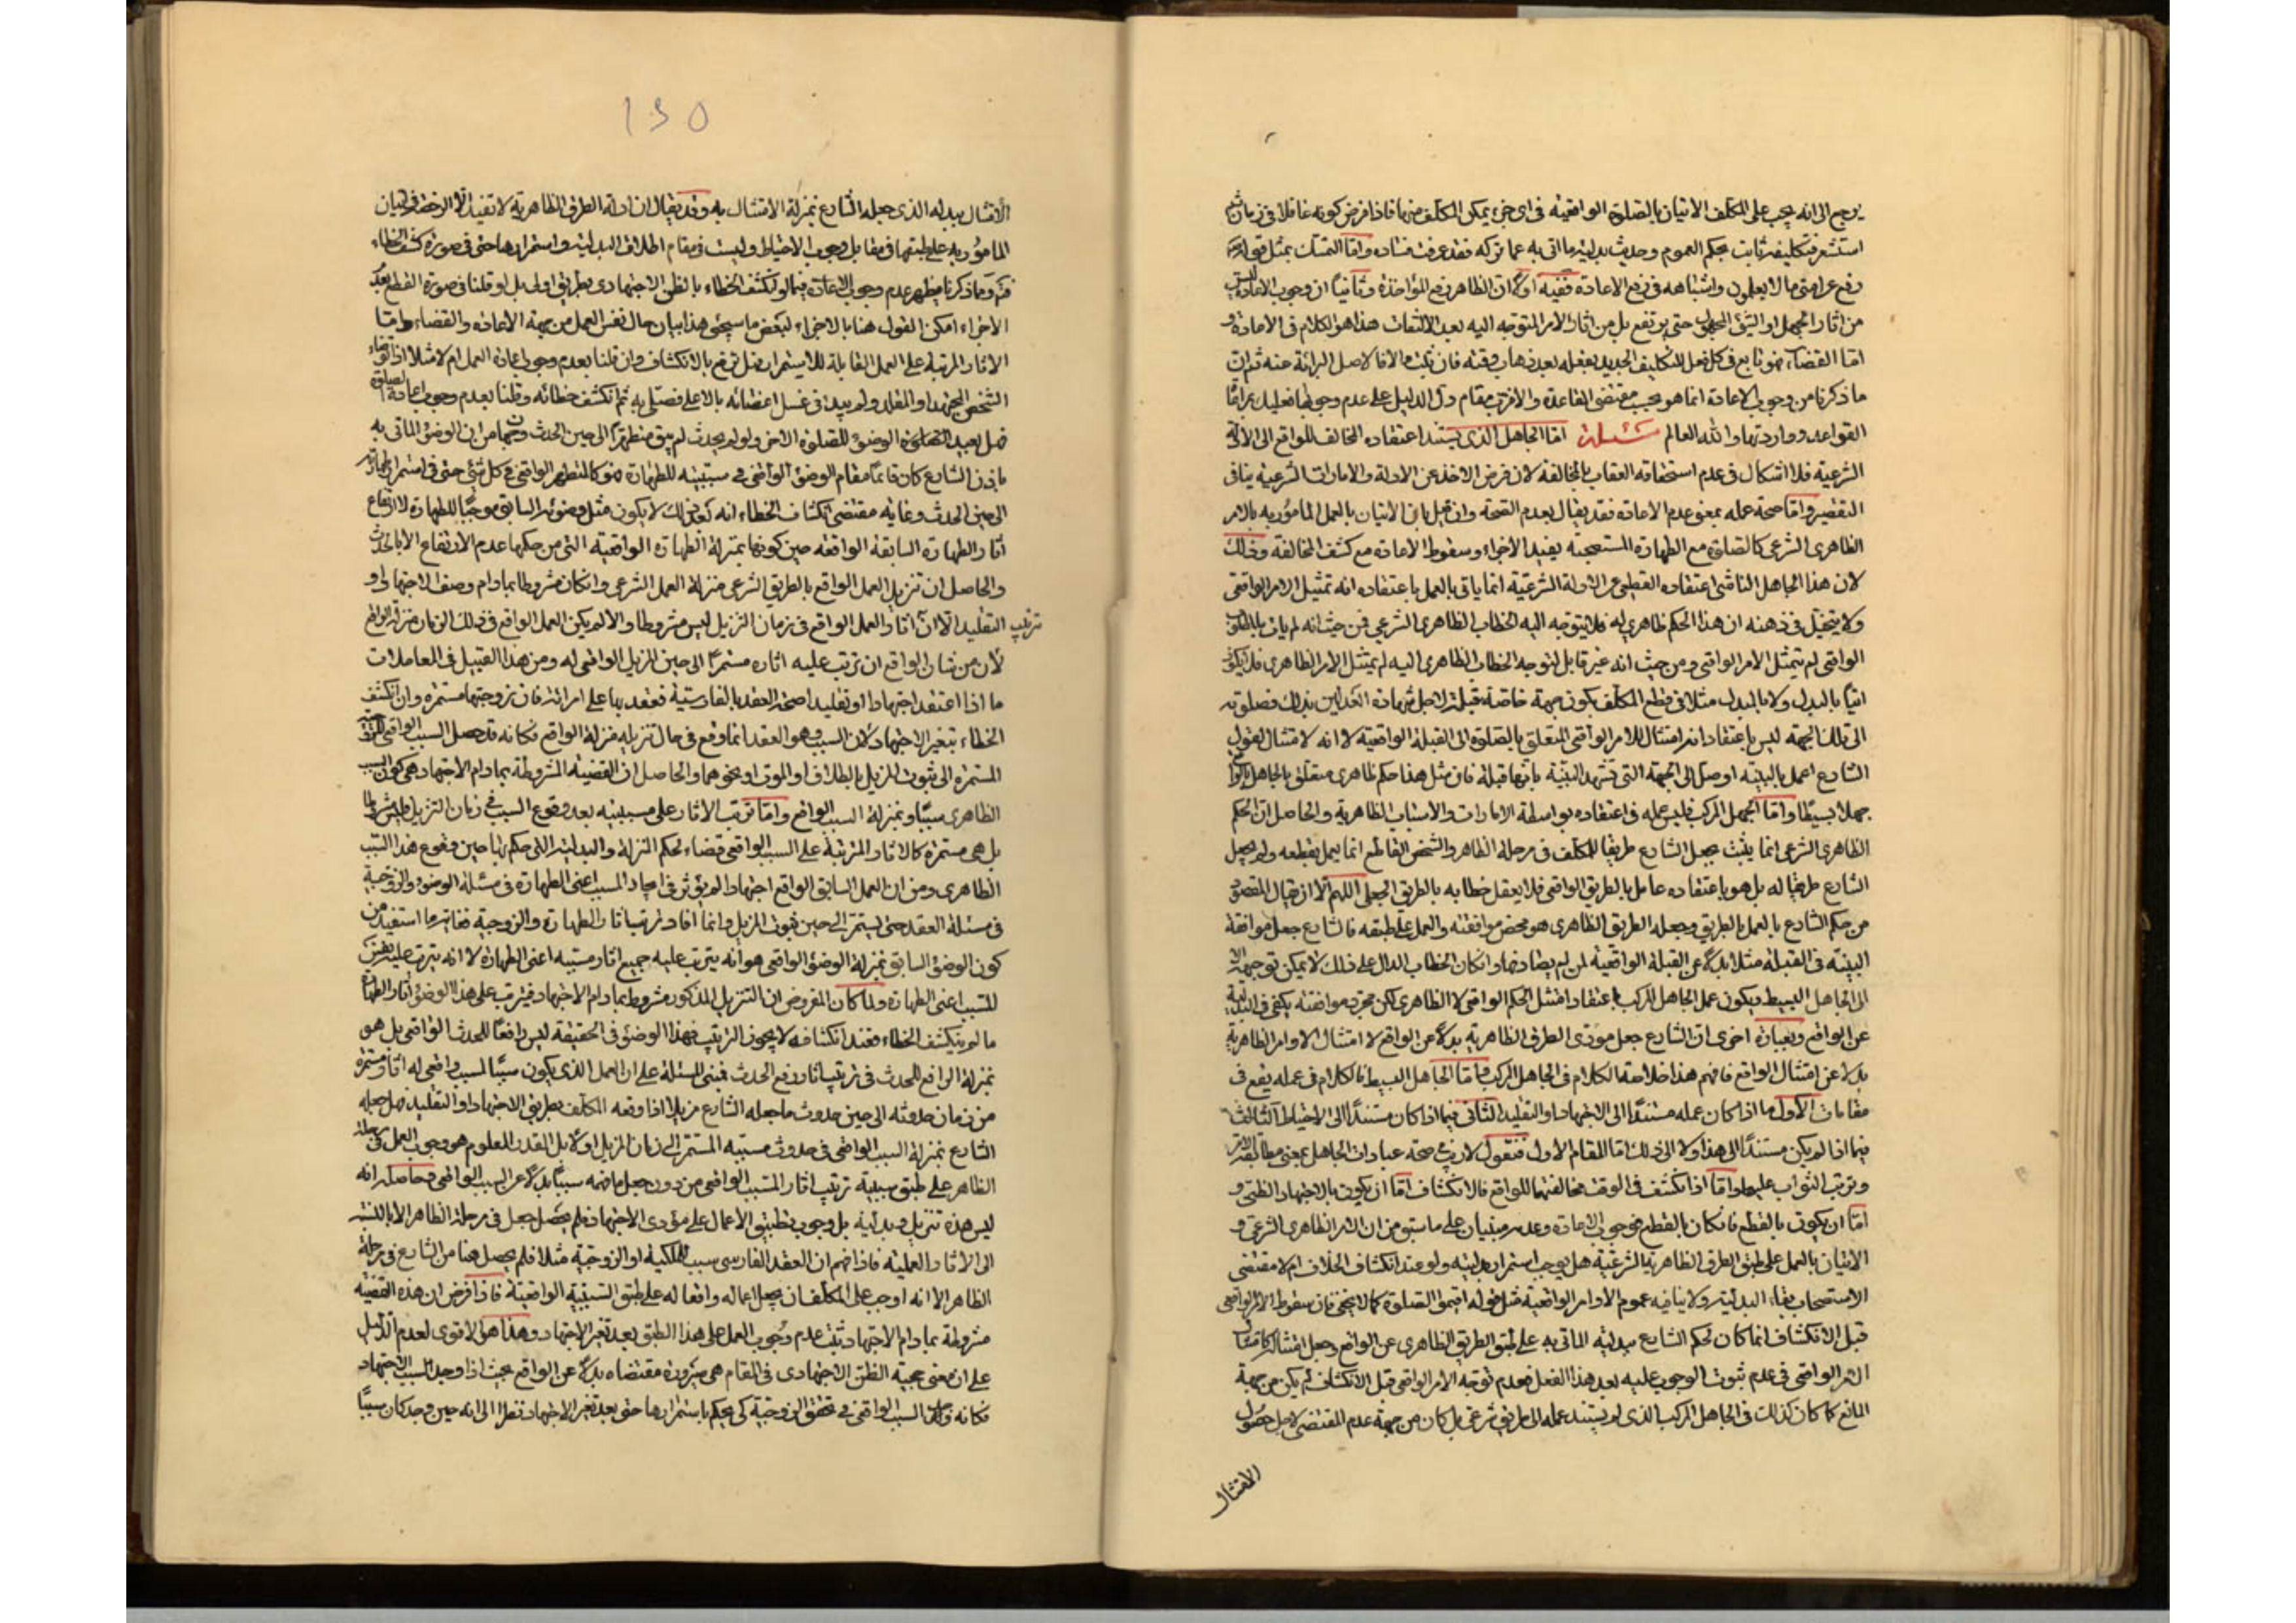 يرجع الى انه يجب على المكلف الاتيان بالصلوة الواقعية فى اى جزء يمكن المكلف منها فاذا فرض كونه غافلا فى زمان ثم
استشعر فتكليفه ثابت بحكم العموم وحديث بدلية ما اتى به عما تركه فقد عرفت فساده واما التمسك بمثل قوله
رفع عن امتى ما لا يعلمون واشباهه فى رفع الاعادة ففيه اولا ان الظاهر رفع المؤاخذة وثانيا ان وجوب الاعادة ليس
من اثار الجهل او الشىء المجهول حتى يرتفع بل من اثار الامر المتوجه اليه بعد الالتفات هذا هو الكلام فى الاعادة و
اما القضاء فهو تابع فى كل فعل للتكليف الجديد بفعله بعد ذهاب وقته فان ثبت والا فالاصل البرائة عنه ثم ان
ما ذكرنا من وجوب الاعادة انما هو بحسب مقتضى القاعدة والا فرب مقام دل الدليل على عدم وجوبها فعليك بمراعات
القواعد ومواردها والله العالم مسئلة اما الجاهل الذى يستند اعتقاده المخالف للواقع الى الادلة
الشرعية فلا اشكال فى عدم استحقاقه العقاب بالمخالفة لان فرض الاخذ عن الادلة والامارات الشرعية ينافى
التقصير واما صحة عمله بمعنى عدم الاعادة فقد يقال بعدم الصحة وان قيل بان الاتيان بالعمل المأمور به بالامر
الظاهرى الشرعى كالصلوة مع الطهارة المستصحبة يفيد الاجزاء وسقوط الاعادة مع كشف المخالفة وذلك
لان هذا الجاهل الناشى اعتقاده القطعى من الادلة الشرعية انما ياتى بالعمل باعتقاده انه تمثيل الامر الواقعى
ولا يتخيل فى ذهنه ان هذا الحكم ظاهرى له فلا يتوجه اليه الخطاب الظاهرى الشرعى فمن حيث انه لم يات بالمطلوب
الواقعى لم يتمثل الامر الواقعى ومن حيث انه غير قابل لتوجه الخطاب الظاهرى اليه لم يمتثل الامر الظاهرى فلا يكون
اتيا بالبدل ولا بالمبدل مثلا فى قطع المكلف بكون جهة خاصة قبلة لاجل شهادة العدلين بذلك فصلوته
الى تلك الجهة ليس باعتقاد انه امتثال للامر الواقعى المتعلق بالصلوة الى القبلة الواقعية لا انه لامتثال لقول
الشارع اعمل بالبينة او صل الى الجهة التى تشهد البينة بانها قبلة فان مثل هذا حكم ظاهرى متعلق بالجاهل بالواقع
جهلا بسيطا واما الجهل المركب فليس عمله فى اعتقاده بواسطة الامارات والاسباب الظاهرية والحاصل ان الحكم
الظاهرى الشرعى انما يثبت بجعل الشارع طريقا للمكلف فى مرحلة الظاهر والشخص القاطع انما يعمل بقطعه ولم يجعل
الشارع طريقا له بل هو باعتقاده عامل بالطريق الواقعى فلا يعقل خطابه بالطريق الجعلى اللهم الا ان يقال المقصود
من حكم الشارع بالعمل بالطريق وجعله الطريق الظاهرى هو محض موافقته والعمل على طبقه فالشارع جعل موافقة
البينة فى القبلة مثلا بدلا عن القبلة الواقعية لمن لم يصادفها وان كان الخطاب الدال على ذلك لا يمكن توجهه الا
الى الجاهل البسيط ويكون عمل الجاهل المركب باعتقاد امتثل الحكم الواقعى لا الظاهرى لكن مجرد موافقته يكفى فى البدلية
عن الواقع وبعبارة اخرى ان الشارع جعل مؤدى الطرق الظاهرية بدلا عن الواقع لا امتثال الاوامر الظاهرية
بدلا عن امتثال الواقع فافهم هذا خلاصة الكلام فى الجاهل المركب واما الجاهل البسيط فالكلام فى عمله يقع فى
مقامات الاول ما اذا كان عمله مستندا الى الاجتهاد او التقليد الثانى فيما اذا كان مستندا الى الاحتياط الثالث
فيما اذا لم يكن مستندا الى هذا ولا الى ذلك اما المقام الاول فنقول لا ريب فى صحة عبادات الجاهل بمعنى مطابقة الامر
وترتب الثواب عليها واما اذا انكشف فى الوقت مخالفتها للواقع فالانكشاف اما ان يكون بالاجتهاد الظنى و
اما ان يكون بالقطع فان كان بالقطع فوجوب الاعادة وعدمه مبنيان على ما سبق من ان الامر الظاهرى الشرعى و
الاتيان بالعمل على طبق الطرق الظاهرية الشرعية هل يوجب استمرار بدليته ولو عند انكشاف الخلاف ام لا مقتضى
الاستصحاب بقاء البدلية ولا ينافيه عموم الاوامر الواقعية مثل قوله اقيموا الصلوة كما لا يخفى فان سقوط الامر الواقعى
قبل الانكشاف انما كان لحكم الشارع ببدلية الماتى به على طبق الطريق الظاهرى عن الواقع وجعل امتثاله كامتثال
الامر الواقعى فى عدم ثبوت الوجوب عليه بعد هذا الفعل فعدم توجه الامر الواقعى قبل الانكشاف لم يكن من جهة
المانع كما كان كذلك فى الجاهل المركب الذى لم يستند عمله الى طريق شرعى بل كان من جهة عدم المقتضى لاجل حصول
الامتثال
130
الامتثال ببدله الذى جعله الشارع بمنزلة الامتثال به وقد يقال ان ادلة الطرق الظاهرية لا تفيد الا الرخصة فى اتيان
المأمور به على طبقها فى مقابل وجوب الاحتياط وليست فى مقام اطلاق البدلية واستمرارها حتى فى صورة كشف الخطاء
ومما ذكرنا يظهر عدم وجوب الاعادة فيما لو انكشف الخطاء بالظن الاجتهادى بطريق اولى بل لو قلنا فى صورة القطع بعدم
الاجزاء امكن القول هنا بالاجزاء لبعض ما سيجىء هذا بيان حال نفس العمل من جهة الاعادة والقضاء واما
الاثار المرتبة على العمل القابلة للاستمرار فهل ترتفع بالانكشاف وان قلنا بعدم وجوب اعادة العمل ام لا مثلا اذا توضاء
الشخص المجتهد او المقلد ولم يبدء فى غسل اعضائه بالاعلى فصلى به ثم انكشف خطائه وقلنا بعدم وجوب اعادة الصلوة
فهل يعيد الوضوء للصلوة الاخرى ولو لم يحدث لم يبق متطهرا الى حين الحدث وجهان من ان الوضوء الماتى به
باذن الشارع كان قائما مقام الوضوء الواقعى فى سببيته للطهارة فهو كالتطهر الواقعى فى كل شىء حتى فى استمرار الطهارة
الى حين الحدث وغاية مقتضى انكشاف الخطاء انه بعد ذلك لا يكون مثل وضوئه السابق موجبا للطهارة لا ارتفاع
اثار الطهارة السابقة الواقعة حين كونها بمنزلة الطهارة الواقعية التى من حكمها عدم الارتفاع الا بالحدث
والحاصل ان تنزيل العمل الواقع بالطريق الشرعى منزلة العمل الشرعى وان كان مشروطا بمادام وصف الاجتهاد او
التقليد الا ان ترتيب اثار العمل الواقع فى زمان التنزيل ليس مشروطا والا لم يكن العمل الواقع فى ذلك الزمان منزلة الواقع
لان من شان الواقع ان ترتب عليه اثاره مستمرا الى حين المزيل الواقعى له ومن هذا القبيل فى المعاملات
ما اذا اعتقد اجتهادا او تقليدا صحة العقد بالفارسية فعقد بها على امرائة فان زوجيتها مستمرة وان انكشف
الخطاء بتغير الاجتهاد لان السبب وهو العقد انما وقع فى حال تنزيله منزلة الواقع فكانه قد حصل السبب الواقعى للزوجية
المستمرة الى ثبوت المزيل بالطلاق او الموت او نحوهما والحاصل ان القضية المشروطة بمادام الاجتهاد هى كون السبب
الظاهرى سببا وبمنزلة السبب الواقع واما ترتب الاثار على مسببيته بعد وقوع السبب فى زمان التنزيل فليس مشروطا
بل هى مستمرة كالاثار المرتبة على السبب الواقعى قضاء لحكم المنزلة والبدلية التى حكم بها حين وقوع هذا السبب
الظاهرى ومن ان العمل السابق الواقع اجتهادا لم يؤثر فى ايجاد المسبب اعنى الطهارة فى مسئلة الوضوء والزوجية
فى مسئلة العقد حتى يستمر الى حين ثبوت المزيل وانما افاد ترتب اثار الطهارة والزوجية فغاية ما استفيد من
كون الوضوء السابق بمنزلة الوضوء الواقعى هو انه يترتب عليه جميع اثار مسببه اعنى الطهارة لا انه يترتب عليه نفس
المسبب اعنى الطهارة ولما كان المفروض ان التنزيل المذكور مشروط بمادام الاجتهاد فيترتب على هذا الوضوء اثار الطهارة
ما لم ينكشف الخطاء فعند انكشافه لا يجوز الترتيب فهذا الوضوء فى الحقيقة ليس رافعا للحدث الواقعى بل هو
بمنزلة الرافع للحدث فى ترتيب اثار رفع الحدث فمبنى المسئلة على ان العمل الذى يكون سببا لمسبب واقعى له اثار مستمرة
من زمان حدوثه الى حين حدوث ما جعله الشارع مزيلا اذا اوقعه المكلف بطريق الاجتهاد او التقليد فهل جعله
الشارع بمنزلة السبب الواقعى فى حدوث مسببه المستمر الى زمان المزيل اولا بل القدر المعلوم هو وجوب العمل فى مرحلة
الظاهر على طبق سببية ترتيب اثار المسبب الواقعى من دون جعل ما فهمه سببا بدلا عن السبب الواقعى وحاصله انه
ليس هذه تنزيل وبدلية بل وجوب تطبيق الاعمال على مؤدى الاجتهاد فلم يحصل جعل فى مرحلة الظاهر الا بالنسبة
الى الاثار العملية فاذا فهم ان العقد الفارسى سبب للملكية او الزوجية مثلا فلم يحصل هنا من الشارع فى مرحلة
الظاهر الا انه اوجب على المكلف ان يجعل اعماله وافعاله على طبق السببية الواقعية فاذا فرض ان هذه القضية
مشروطة بمادام الاجتهاد ثبت عدم وجوب العمل على هذا الطبق بعد تغير الاجتهاد وهذا هو الاقوى لعدم الدليل
على ان معنى حجية الظن الاجتهادى فى المقام هى صيرورة مقتضاه بدلا عن الواقع بحيث اذا وجد السبب الاجتهادى
فكانه وجد السبب الواقعى فى تحقق الزوجية كى يحكم باستمرارها حتى بعد تغير الاجتهاد نظرا الى انه حين وجد كان سببا